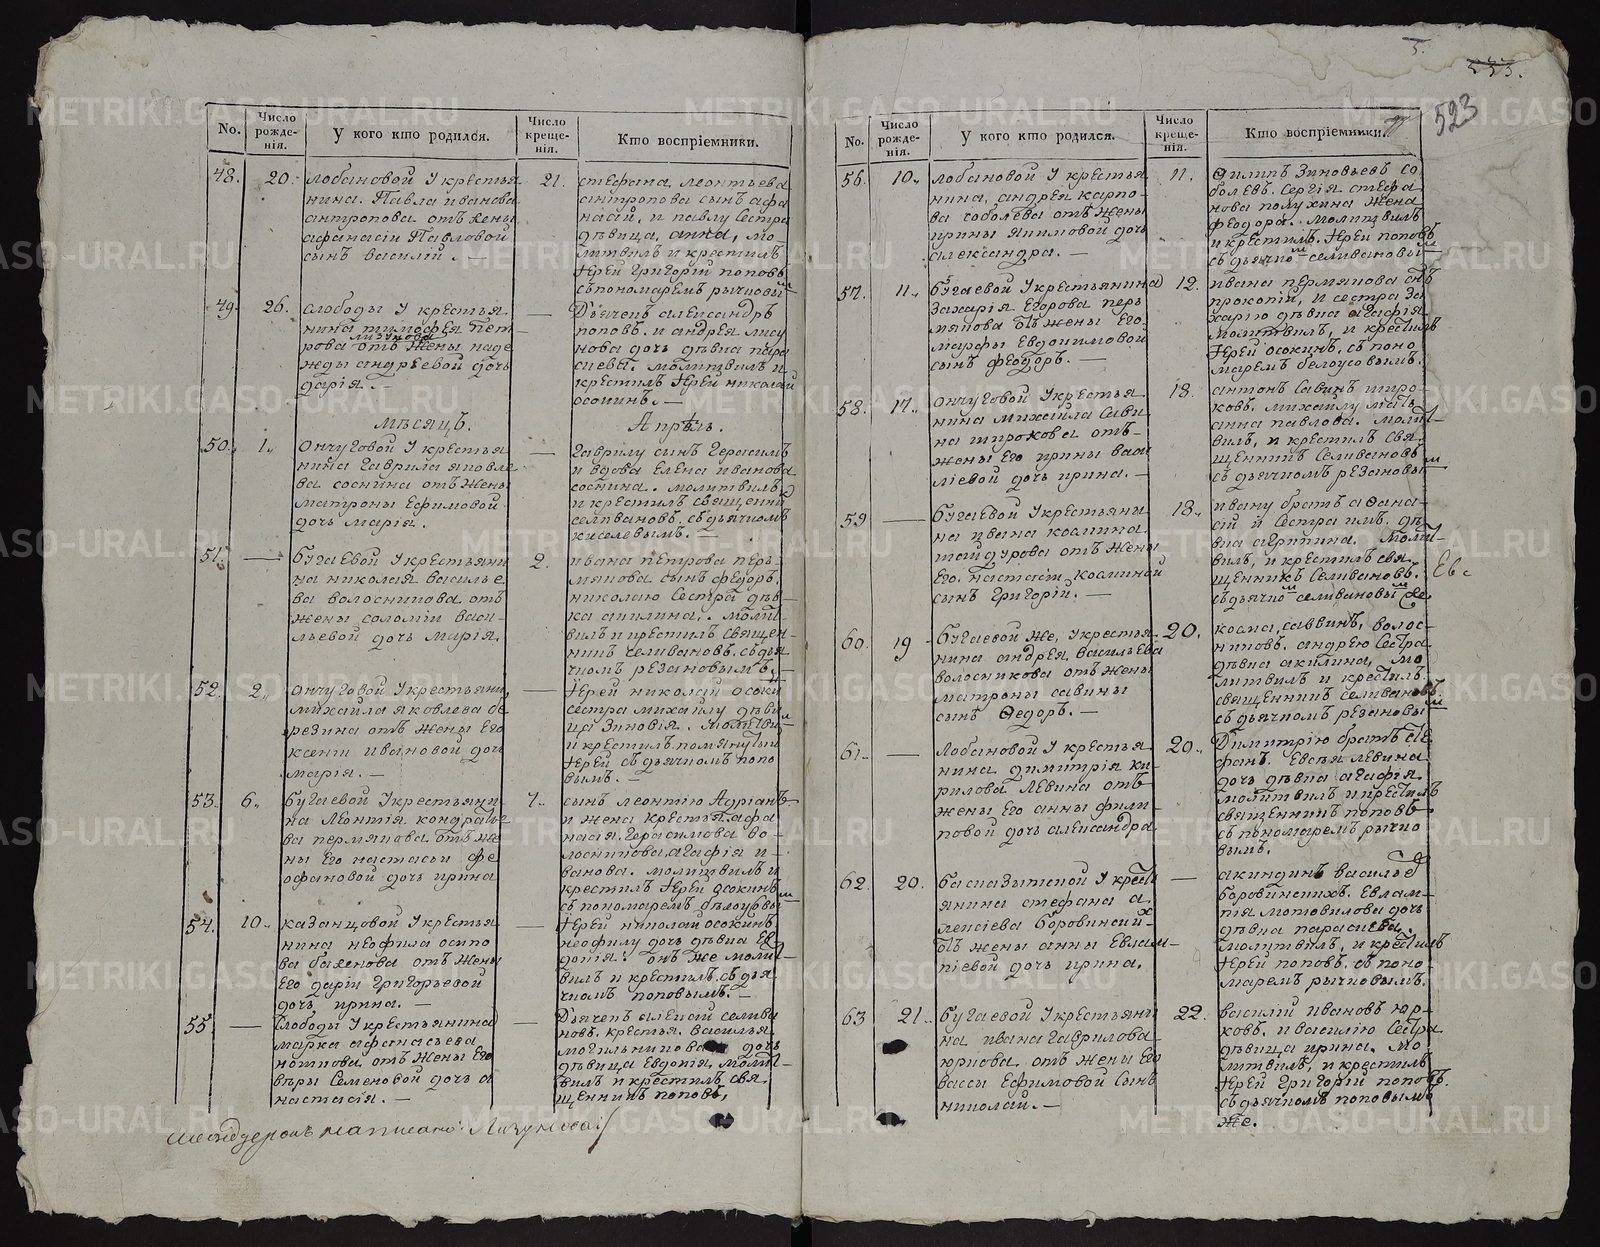 5.
533.
523
No.
Число рожде-нія.
У кого кто родился.
Число креще-нія.
Кто воспріемники.
48.
20.
Лобановой У крестья
нина. Павла иванова
антропова отъ жены
афанасіи Павловой
сынъ василій. —
21.
стефана леонтьева
антропова сынъ афа
насій, и павлу сестра
дѣвица, анна, мо
литвилъ и крестилъ
Іерей Григорій поповъ
съ пономаремъ рычковы
49.
26.
слободы У крестья
нина тимофея пет-
рова лизунова отъ жены наде
жды андреевой дочь
дарія. —
—
Дьячекъ александръ
поповъ. и андрея лизу
нова дочь дѣвка пара
скева. молитвилъ и
крестилъ Іерей николай
осокинъ. —
мѣсяцъ.
Апрѣль.
50.
1.
анчуговой У крестья
нина гаврила яковле
ва соснина отъ жены
матроны Ефимовой
дочь марія.
—
гаврилу сынъ герасимъ
и вдова Елена иванова
соснина. молитвилъ
и крестилъ священникъ
селивановъ. съ дьячкомъ
киселевымъ. —
51.
—
бугаевой У крестьяни
на николая василье
ва волосникова отъ
жены соломіи васи-
льевой дочь марія.
2.
ивана петрова пер-
мякова сынъ федоръ.
николаю сестра дѣв-
ка акилина. молит-
вилъ и крестилъ священ-
никъ селивановъ. съ дья
чкомъ резановымъ. —
52.
2.
анчуговой У крестьянина
михайла яковлева бе
резина отъ жены Его
ксеніи ивановой дочь
марія. —
—
Іерей николай осоки
сестра михайлу дѣви
ца Зиновія. молитви
и крестилъ помянутый
Іерей съ дьячкомъ попо
вымъ. —
53.
6.
бугаевой У крестьяни-
на леонтія кондратье
ва пермякова. отъ же
ны Его настасьи фе
офановой дочь ирина
7.
сынъ леонтію Адріанъ
и жена крестья. афа
насія. герасимова во-
лосникова. агафія и-
ванова. молитвилъ и
крестилъ Іерей осокинъ
съ пономаремъ бѣлоусовы
54.
10.
казанцовой У крестья
нина неофила осипо
ва баженова отъ жены
Его даріи григорьевой
дочь ирина. —
—
Іерей николай осокинъ
неофилу дочь дѣвка Ев
докія. онъ же молит-
вилъ и крестилъ. съ дья
чкомъ поповымъ. —
55.
—
слободы У крестьянина
марка афанасьева
ноткова. отъ жены Его
вѣры Семеновой дочь а
настасія. —
—
Дьячекъ алексій селива
новъ. крестья. василья
могильникова дочь
дѣвица Евдокія. молит-
вилъ и крестилъ. свя.
щенникъ поповъ,
написано: Лизунова
No.
Число рожде-нія.
У кого кто родился.
Число креще-нія.
Кто воспріемники.
56.
10.
лобановой У крестья
нина, андрея карпо-
ва соболева отъ жены
ирины якимовой дочь
александра. —
11.
Филипъ Зиновьевъ со
болевъ. сергія стефа
нова полухина жена
феодора. молитвилъ
и крестилъ. Іерей поповъ
съ дьячко селивановы
57.
11.
бугаевой У крестьянина
Захарія Егорова пер
мякова отъ жены Его
марфы Евдокимовой
сынъ феодоръ. —
12.
ивана пермякова сынъ
прокопій, и сестра За
харію дѣвка агафія
молитвилъ, и крестилъ
Іерей осокинъ. съ поно
маремъ белоусовымъ.
58.
17.
анчуговой У крестья
нина михайла сави
на широкова отъ-
жены Его ирины васи
ліевой дочь ирина. —
18.
антонъ савинъ широ-
ковъ. михайлу мать
анна павлова. молит-
вилъ, и крестилъ свя-
щенникъ селивановъ
съ дьячкомъ резановы
59
—
бугаевой У крестьяни-
на ивана космина
шайдурова отъ жены
Его. настасіи косминой
сынъ григорій. —
18.
ивану братъ афана-
сій и сестра имъ. дѣ
вка агрипина. молит-
вилъ, и крестилъ свя
щенникъ селивановъ.
съ дьячко селивановы же.
Евс
60.
19
бугаевой же, У крестья-
нина андрея. васильева
волосникова отъ жены
матроны савины
сынъ Федоръ. —
20.
косма, саввинъ. волос-
никовъ. андрею сестра
дѣвка акилина, мо
литвилъ и крестилъ.
священникъ селивановъ.
съ дьячкомъ резановы
61.
—
лобановой У крестья
нина димитрія ки-
рилова левина отъ-
жены Его анны фили-
повой дочь александра
20.
Димитрію братъ сте
фанъ. Евсея левина
дочь дѣвка агафія
молитвилъ и крестилъ
священникъ поповъ
съ пономаремъ рычко
вымъ.
62.
20.
баснятской У крест
янина стефана а.
лексіева боровинскихъ
отъ жены анны Евлам-
піевой дочь ирина.
—
акиндинъ васильевъ
боровинскихъ. Евлам-
пія мотовилова дочь
дѣвка параскева.
молитвилъ, и крестилъ
Іерей поповъ, съ поно
маремъ рычковымъ.
63
21.
бугаевой У крестьяни
на ивана гаврилова
юркова. отъ жены Его
вассы Ефимовой сынъ
николай. —
22.
василій ивановъ юр-
ковъ. и василію сестра
дѣвица ирина. мо
литвилъ, и крестилъ
Іерей григорій поповъ.
съ дьячкомъ поповымъ
же.